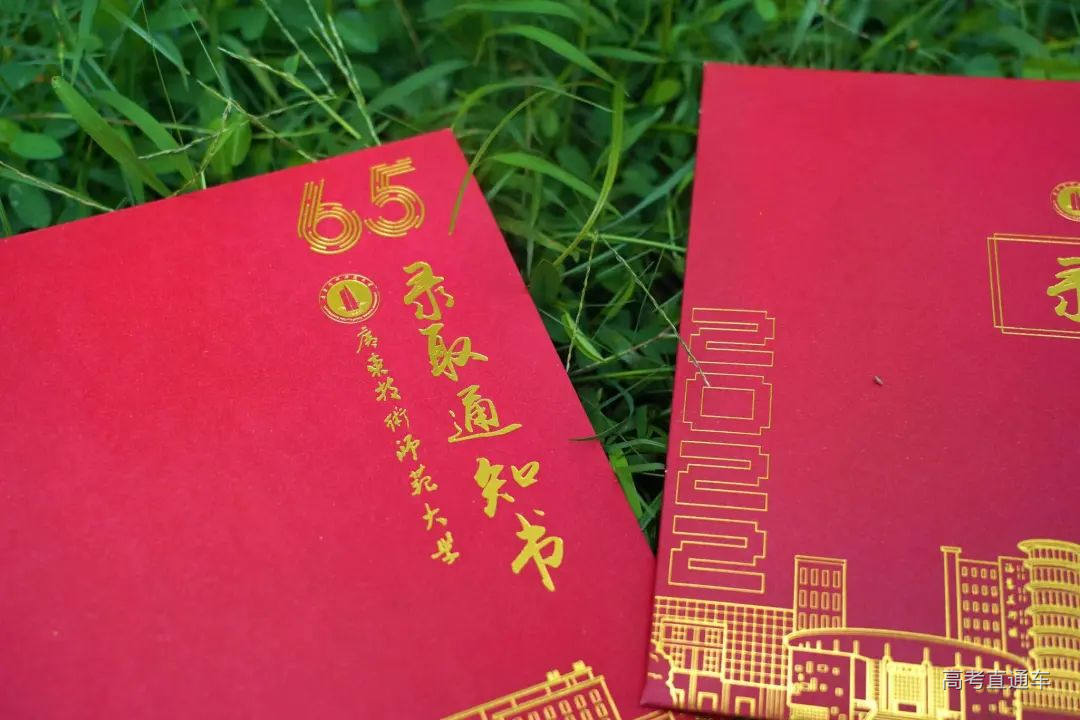 65
录取通知书
廣東技術师范大学
2022
录
高考直通车